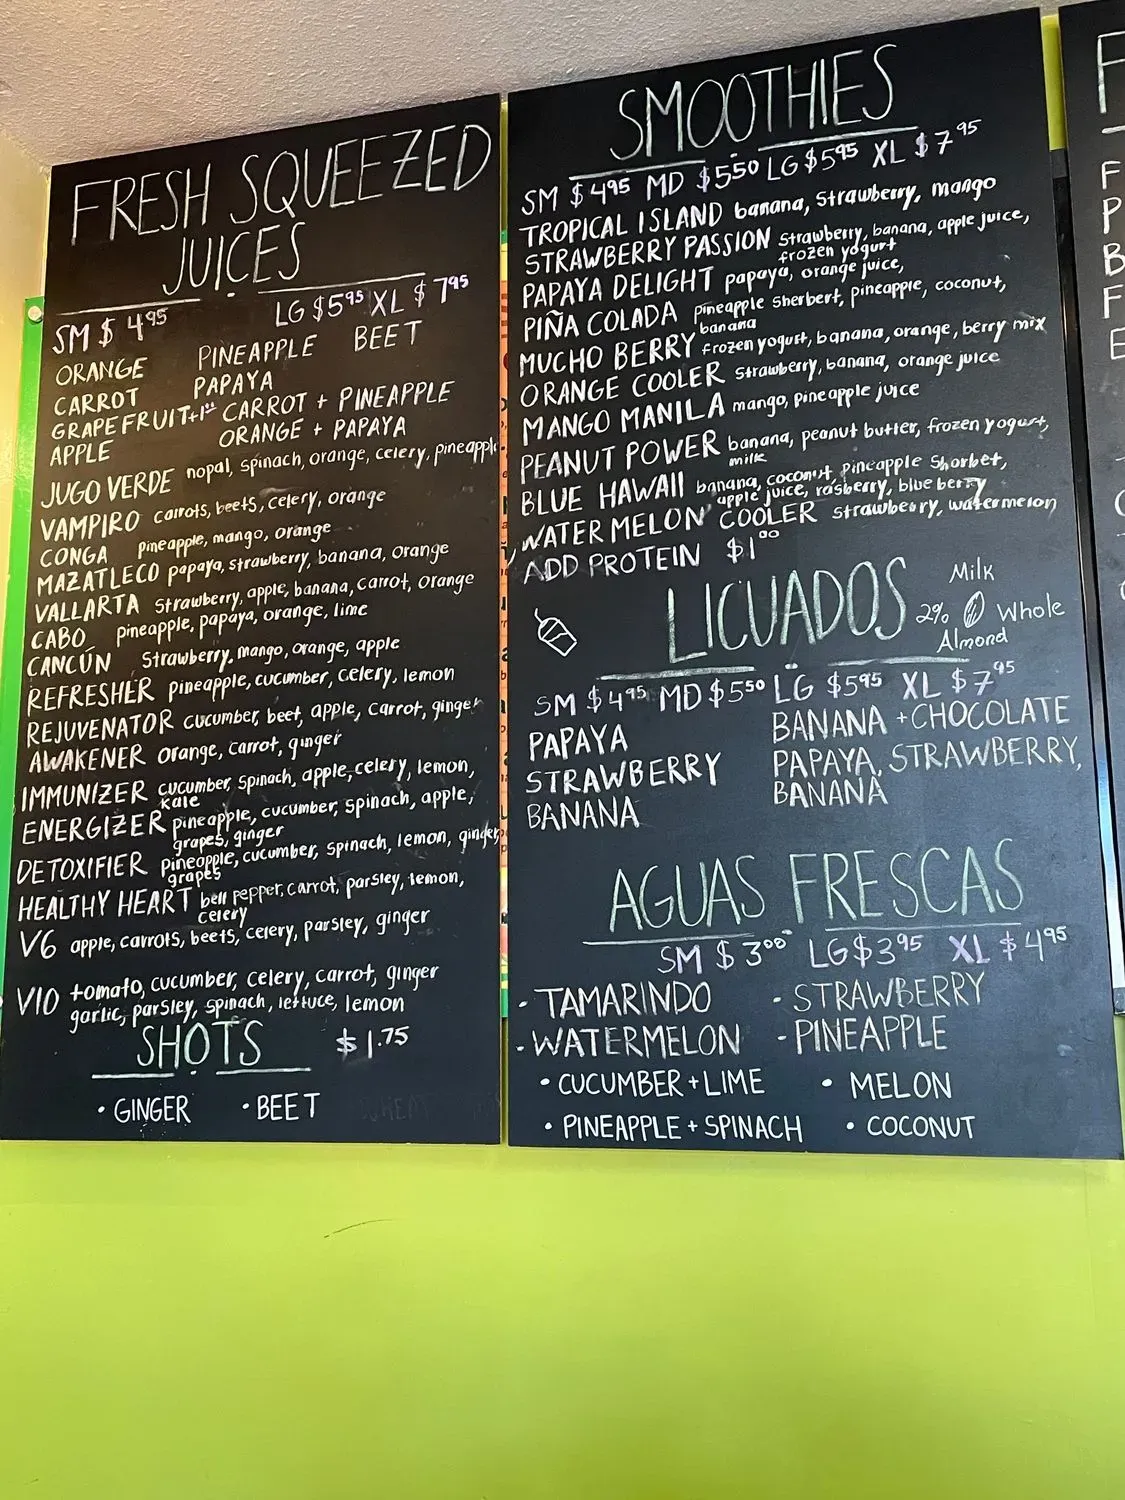 FRESH SQUEEZED
JUICES
SM $4.95 LG $5.95 XL $7.95
ORANGE PINEAPPLE BEET
CARROT PAPAYA
GRAPEFRUIT+1 CARROT + PINEAPPLE
APPLE ORANGE + PAPAYA
JUGO VERDE nopal, spinach, orange, celery, pineapple
VAMPIRO carrots, beets, celery, orange
CONGA pineapple, mango, orange
MAZATLECO papaya, strawberry, banana, orange
VALLARTA strawberry, apple, banana, carrot, orange
CABO pineapple, papaya, orange, lime
CANCÚN strawberry, mango, orange, apple
REFRESHER pineapple, cucumber, celery, lemon
REJUVENATOR cucumber, beet, apple, carrot, ginger
AWAKENER orange, carrot, ginger
IMMUNIZER cucumber, spinach, apple, celery, lemon,
kale
ENERGIZER pineapple, cucumber, spinach, apple,
grapes, ginger
DETOXIFIER pineapple, cucumber, spinach, lemon, ginger,
grapes
HEALTHY HEART bell pepper, carrot, parsley, lemon,
celery
V6 apple, carrots, beets, celery, parsley, ginger
V10 tomato, cucumber, celery, carrot, ginger
garlic, parsley, spinach, lettuce, lemon
SHOTS $1.75
• GINGER • BEET
SMOOTHIES
SM $4.95 MD $5.50 LG $5.95 XL $7.95
TROPICAL ISLAND banana, strawberry, mango
STRAWBERRY PASSION strawberry, banana, apple juice,
frozen yogurt
PAPAYA DELIGHT papaya, orange juice,
PIÑA COLADA pineapple sherbert, pineapple, coconut,
banana
MUCHO BERRY frozen yogurt, banana, orange, berry mix
ORANGE COOLER strawberry, banana, orange juice
MANGO MANILA mango, pineapple juice
PEANUT POWER banana, peanut butter, frozen yogurt,
milk
BLUE HAWAII banana, coconut, pineapple shorbet,
apple juice, rasberry, blue berry
WATERMELON COOLER strawberry, watermelon
ADD PROTEIN $1.00
LICUADOS
Milk
2% Whole
Almond
SM $4.95 MD $5.50 LG $5.95 XL $7.95
PAPAYA BANANA + CHOCOLATE
STRAWBERRY PAPAYA, STRAWBERRY,
BANANA BANANA
AGUAS FRESCAS
SM $3.00 LG $3.95 XL $4.95
- TAMARINDO - STRAWBERRY
- WATERMELON - PINEAPPLE
• CUCUMBER + LIME • MELON
• PINEAPPLE + SPINACH • COCONUT
F
F
P
B
F
E